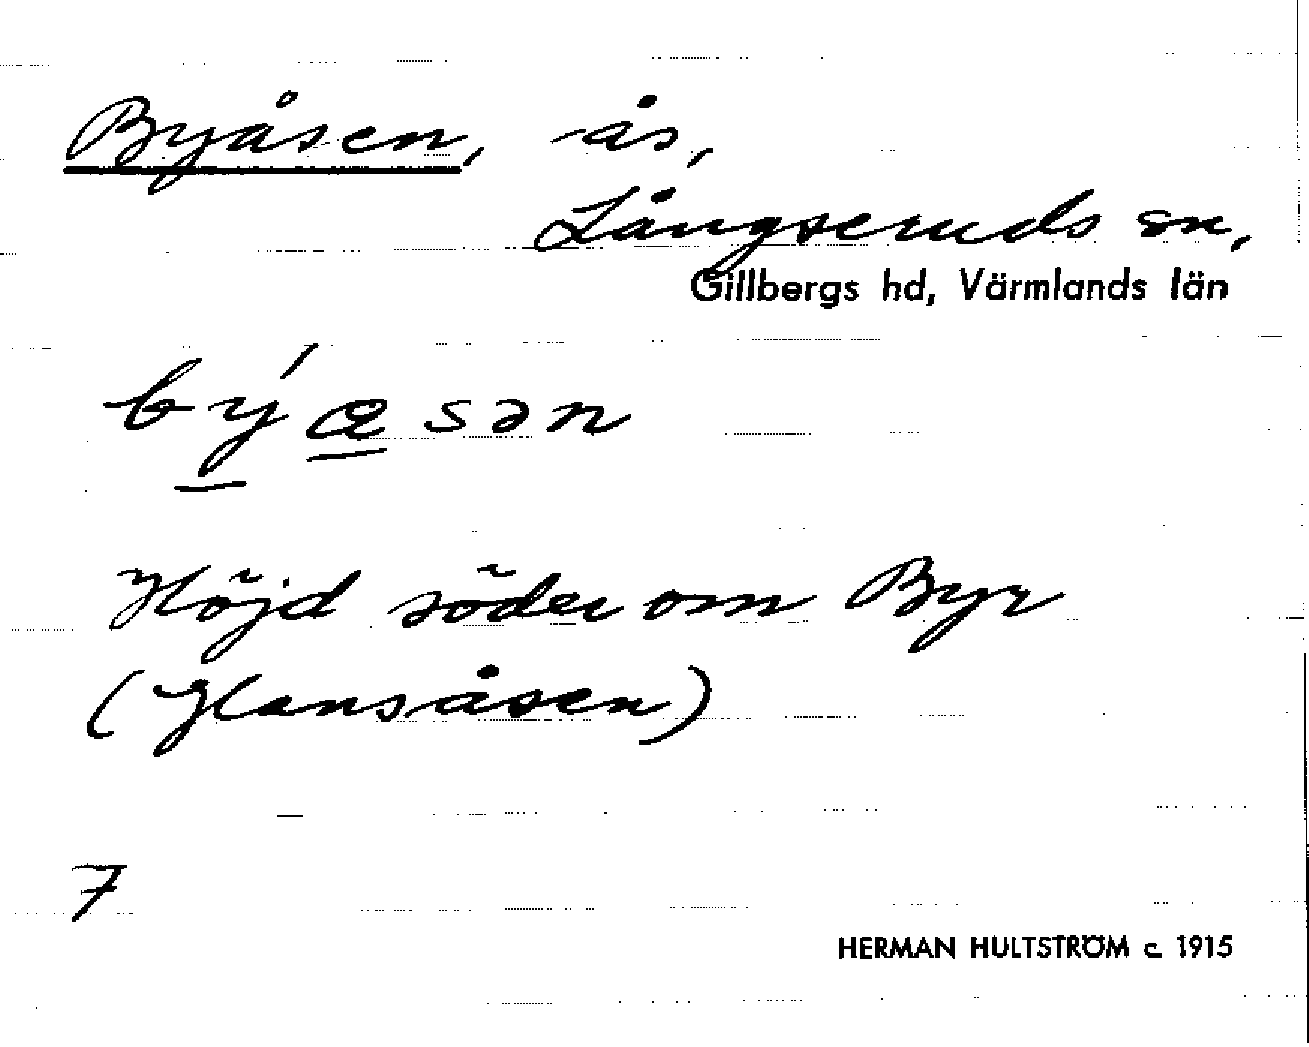 Byåsen, ås,
Långseruds sn,
Gillbergs hd, Värmlands län
Höjd söder om Byr
(Hansåsen)
7
HERMAN HULTSTRÖM c. 1915